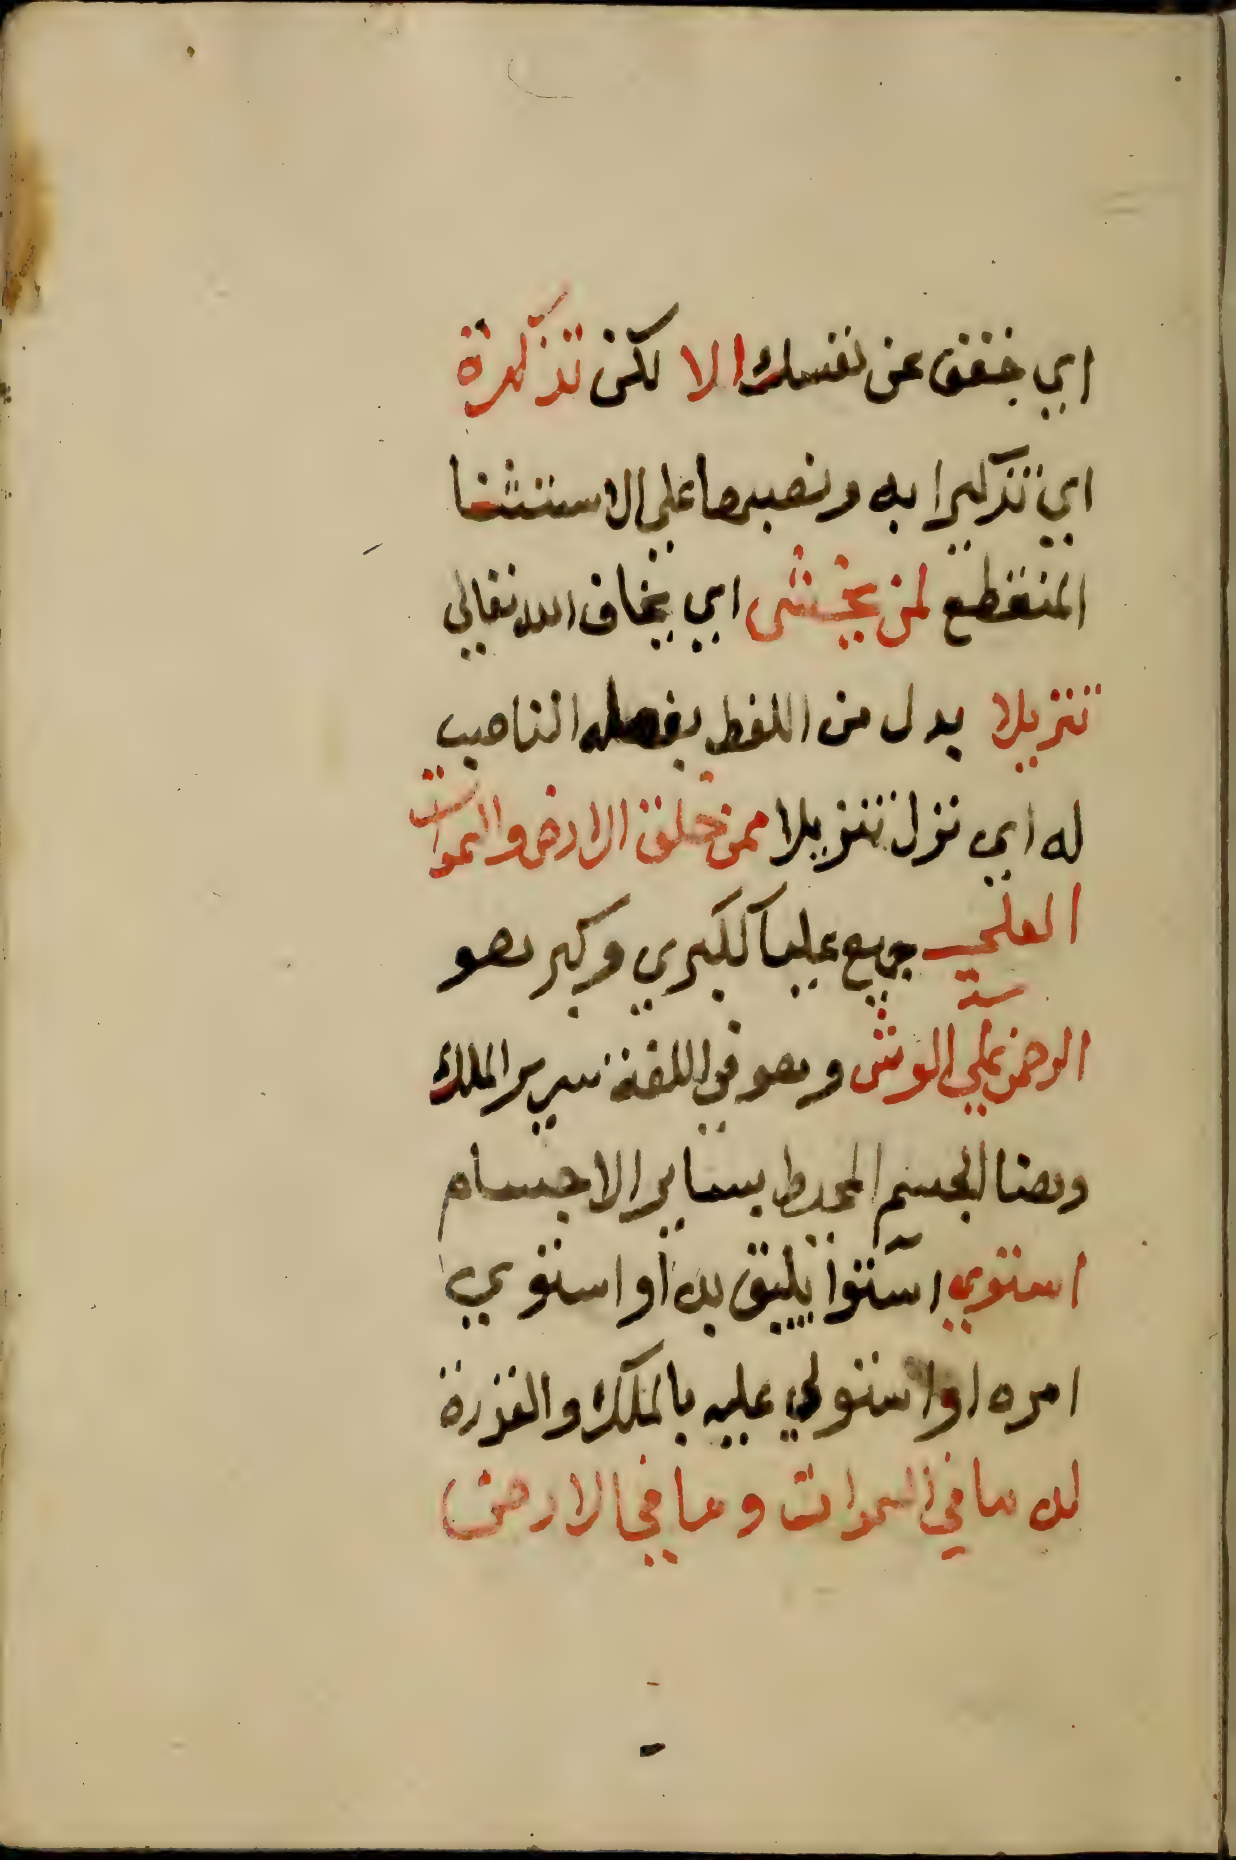 اي خفف عن نفسك الا لكن تذكرة
اي تذكيرا به ونصبها على الاستثنا
المنقطع لمن يخشى اي يخاف الله تعالى
تنزيلا بدل من اللفظ بفعله الناصب
له اي نزل تنزيلا ممن خلق الارض والسموات
العلى جمع عليا ككبرى وكبر هو
الرحمن على العرش وهو في اللغة سرير الملك
وهنا الجسم المحيط بساير الاجسام
استوي استوآ يليق به او استوي
امره او استولي عليه بالملك والقدرة
له ما في السموات وما في الارض